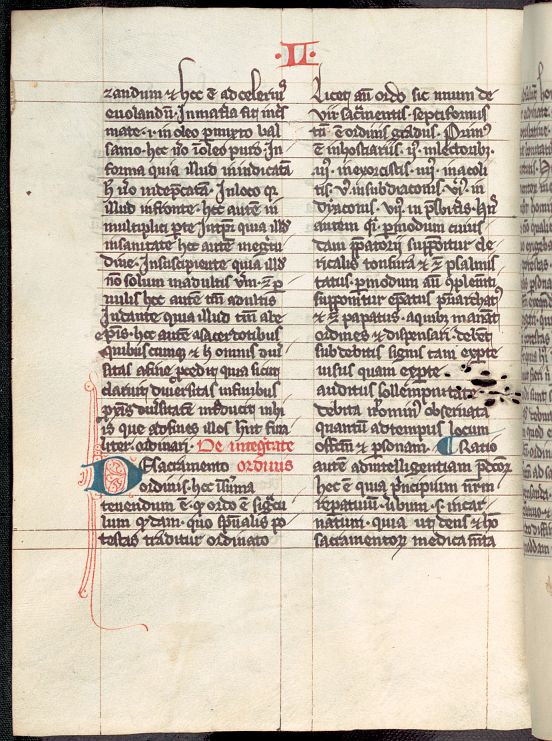 ·II·
tandum ⁊ hec ē ad celeriꝰ
euolandū. In mat̄ia sit incs
mate. r in oleo p mixto bal
samo. hec ūo ī oleo puro. In
forma quia illud in indicatā
h̄ ūo in dep̄catā. In loco q̄
illud in fronte. hec autē in
multiplici p̄te. Intp̄i quia illd̄
in sanitate hec autē in egͥtu
dine. In suscipiente quia illd̄
nō solum in adultis v̄ū ⁊ p
uulis hec autē tm̄ adultis
In dante quia illud tm̄ ab e
ep̄is. hec autē a sacerdotibus
quibuscumq; ⁊ h omnis diu̾
sitas a fine p̄cedit quia sicut
claruit diuersitas in finibus
p̄ntis diu̾sitatē inducit in hi
is que ad fines illos hn̄t fina
liter ordinari. De integͥtate
De sacramento ordinis
ordinis. hec sūma
tenendum ē. q̄ ordo ē sigͣcu
lum q̄ddam. quo sp̄ualis po
testas traditur ordinato
Licet aū ordo sic unum de
vii. sac̄mentis. septiformis
tn̄ ē ordinis gͣdus. Primꝰ
ē in hostiariis. ijꝰ. in lectoribꝰ.
iijꝰ. in exorcistis. iiijꝰ. in acoli
tis. vꝰ in subdiaconis. vjꝰ. in
dyaconis. vijꝰ. in p̄sbit̾is. Hij
autem q̄i p modum cuius
dam p̄paratorii supponitur cle
ricalis tonsura ⁊ ⁊ psalmis
tatus. p modum aū 9plenti
supponitur ep̄atus p̄iarchatꝰ
⁊ papatus. a quibꝰ manāt
ordines ⁊ dispensari debēt
sub debitis signis tam ex p̄te
uisus quam ex p̄te
auditus sollempnitate
debita ī ōmibꝰ obseruata
quantū ad tempus locum
officiū ⁊ p̄sonam. ¶ Ratio
autē ad intelligentiam p̄dc̄or̄
hec ē quia p̄ncipium nr̄m
reparatiuū. v̄bum .s. incar
natum. quia uti deus ⁊ hō
sacramentor̄ medicam̄ta